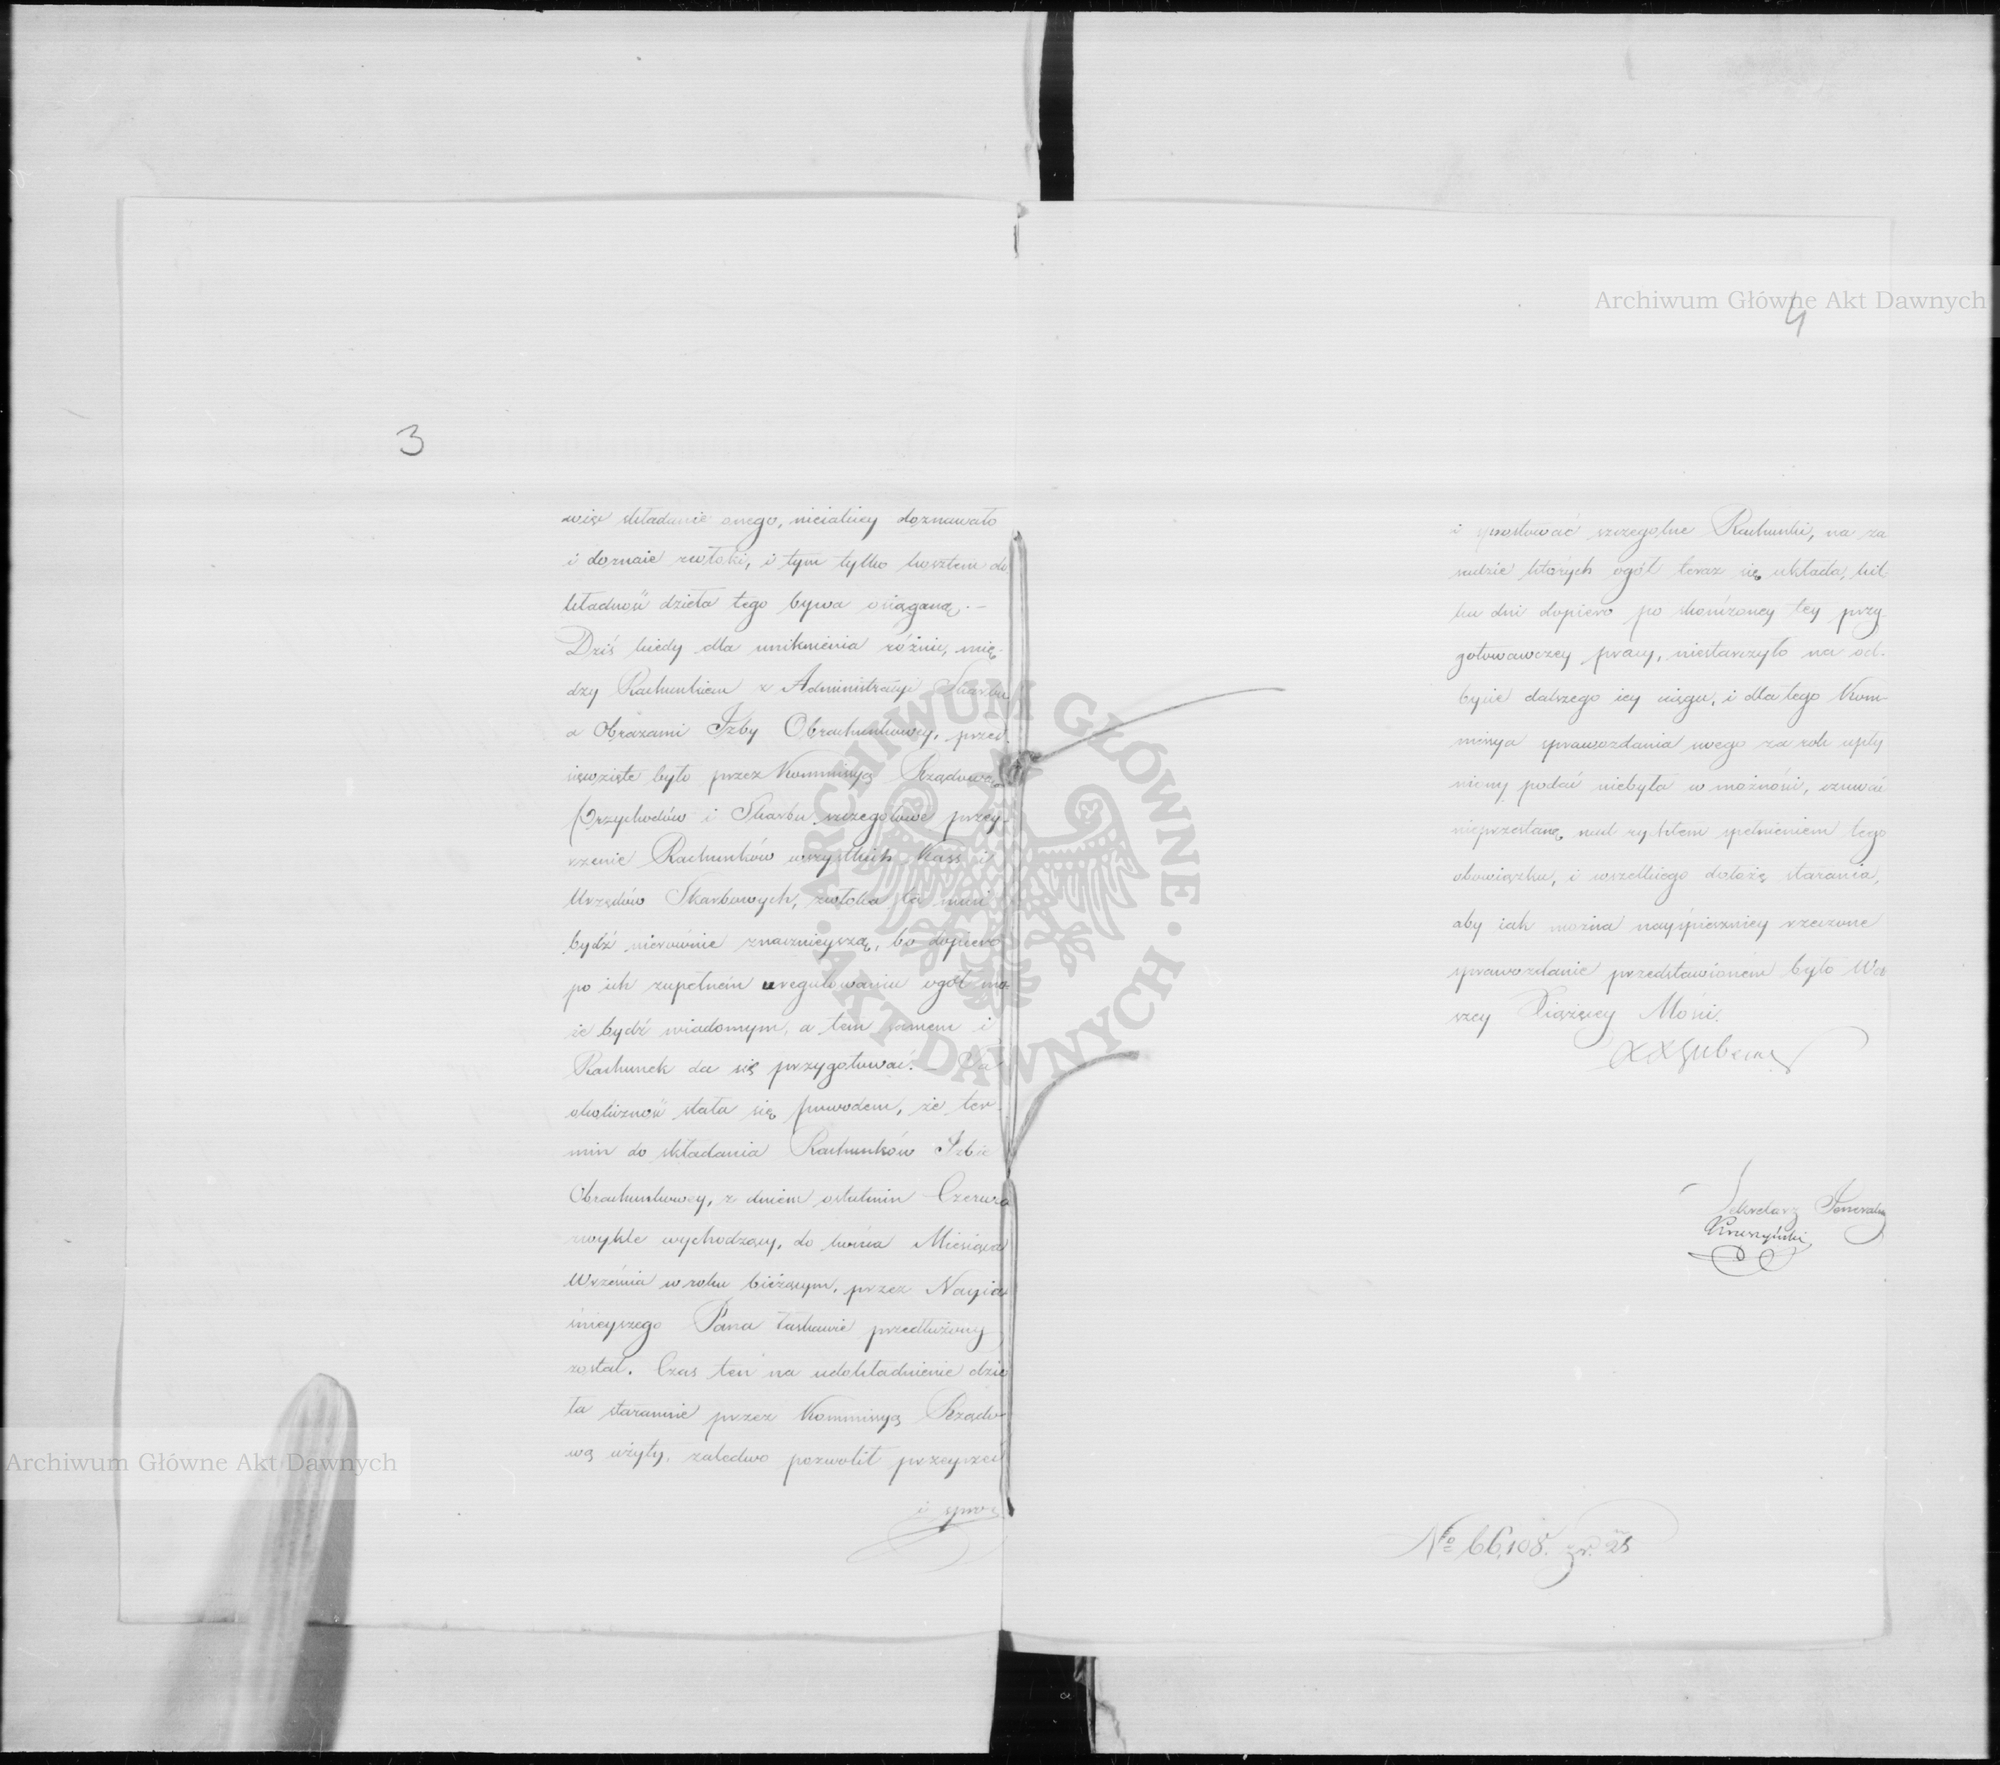 3
więc składanie onego, nieiakiey doznawało
i doznaie zwłoki, i tym tylko kosztem do
kładność dzieła tego bywa osiąganą.—
Dziś kiedy dla uniknienia różnic, mię-
dzy Rachunkiem z Administracyi Skarbu
a Obrazami Izby Obrachunkowey, przed
sięwzięte było przez Kommissyą Rządową
Przychodów i Skarbu szczegółowe przey-
rzenie Rachunków wszystkich Kass i
Urzędów Skarbowych, zwłoka ta musi
bydź nierównie znacznieyszą, bo dopiero
po ich zupełném uregulowaniu ogół mo-
że bydź wiadomym, a tem samem i
Rachunek da się przygotować.— Ta
okoliczność stała się powodem, że ter-
min do składania Rachunków Izbie
Obrachunkowey, z dniem ostatnim Czerwca
zwykle wychodzący, do końca Miesiąca
Września w roku bieżącym, przez Nayia
śnieyszego Pana łaskawie przedłużony
został. Czas ten na udokładnienie dzie
ła starannie przez Kommissyą Rządo-
wą użyty, zaledwo pozwolił przeyrzeć
i spros
4
i sprostować szczegolne Rachunki, na za
sadzie których ogół teraz się układa, kil-
ka dni dopiero po skończoney tey przy-
gotowawczey pracy, niestarczyło na od-
bycie dalszego iey ciągu, i dla tego Kom-
missya sprawozdania swego za rok upły
niony podać niebyła w możności, czuwać
nieprzestanę nad rychłem spełnieniem tego
obowiązku, i wszelkiego dołożę starania,
aby iak można nayśpieszniey rzeczone
sprawozdanie przedstawioném było Wa
szey Xiążęcey Mości.
X X Lubecki
Sekretarz Jeneralny
Kruszyński
No 66,108. zr. 28
Archiwum Główne Akt Dawnych
Archiwum Główne Akt Dawnych
ARCHIWUM GŁÓWNE AKT DAWNYCH